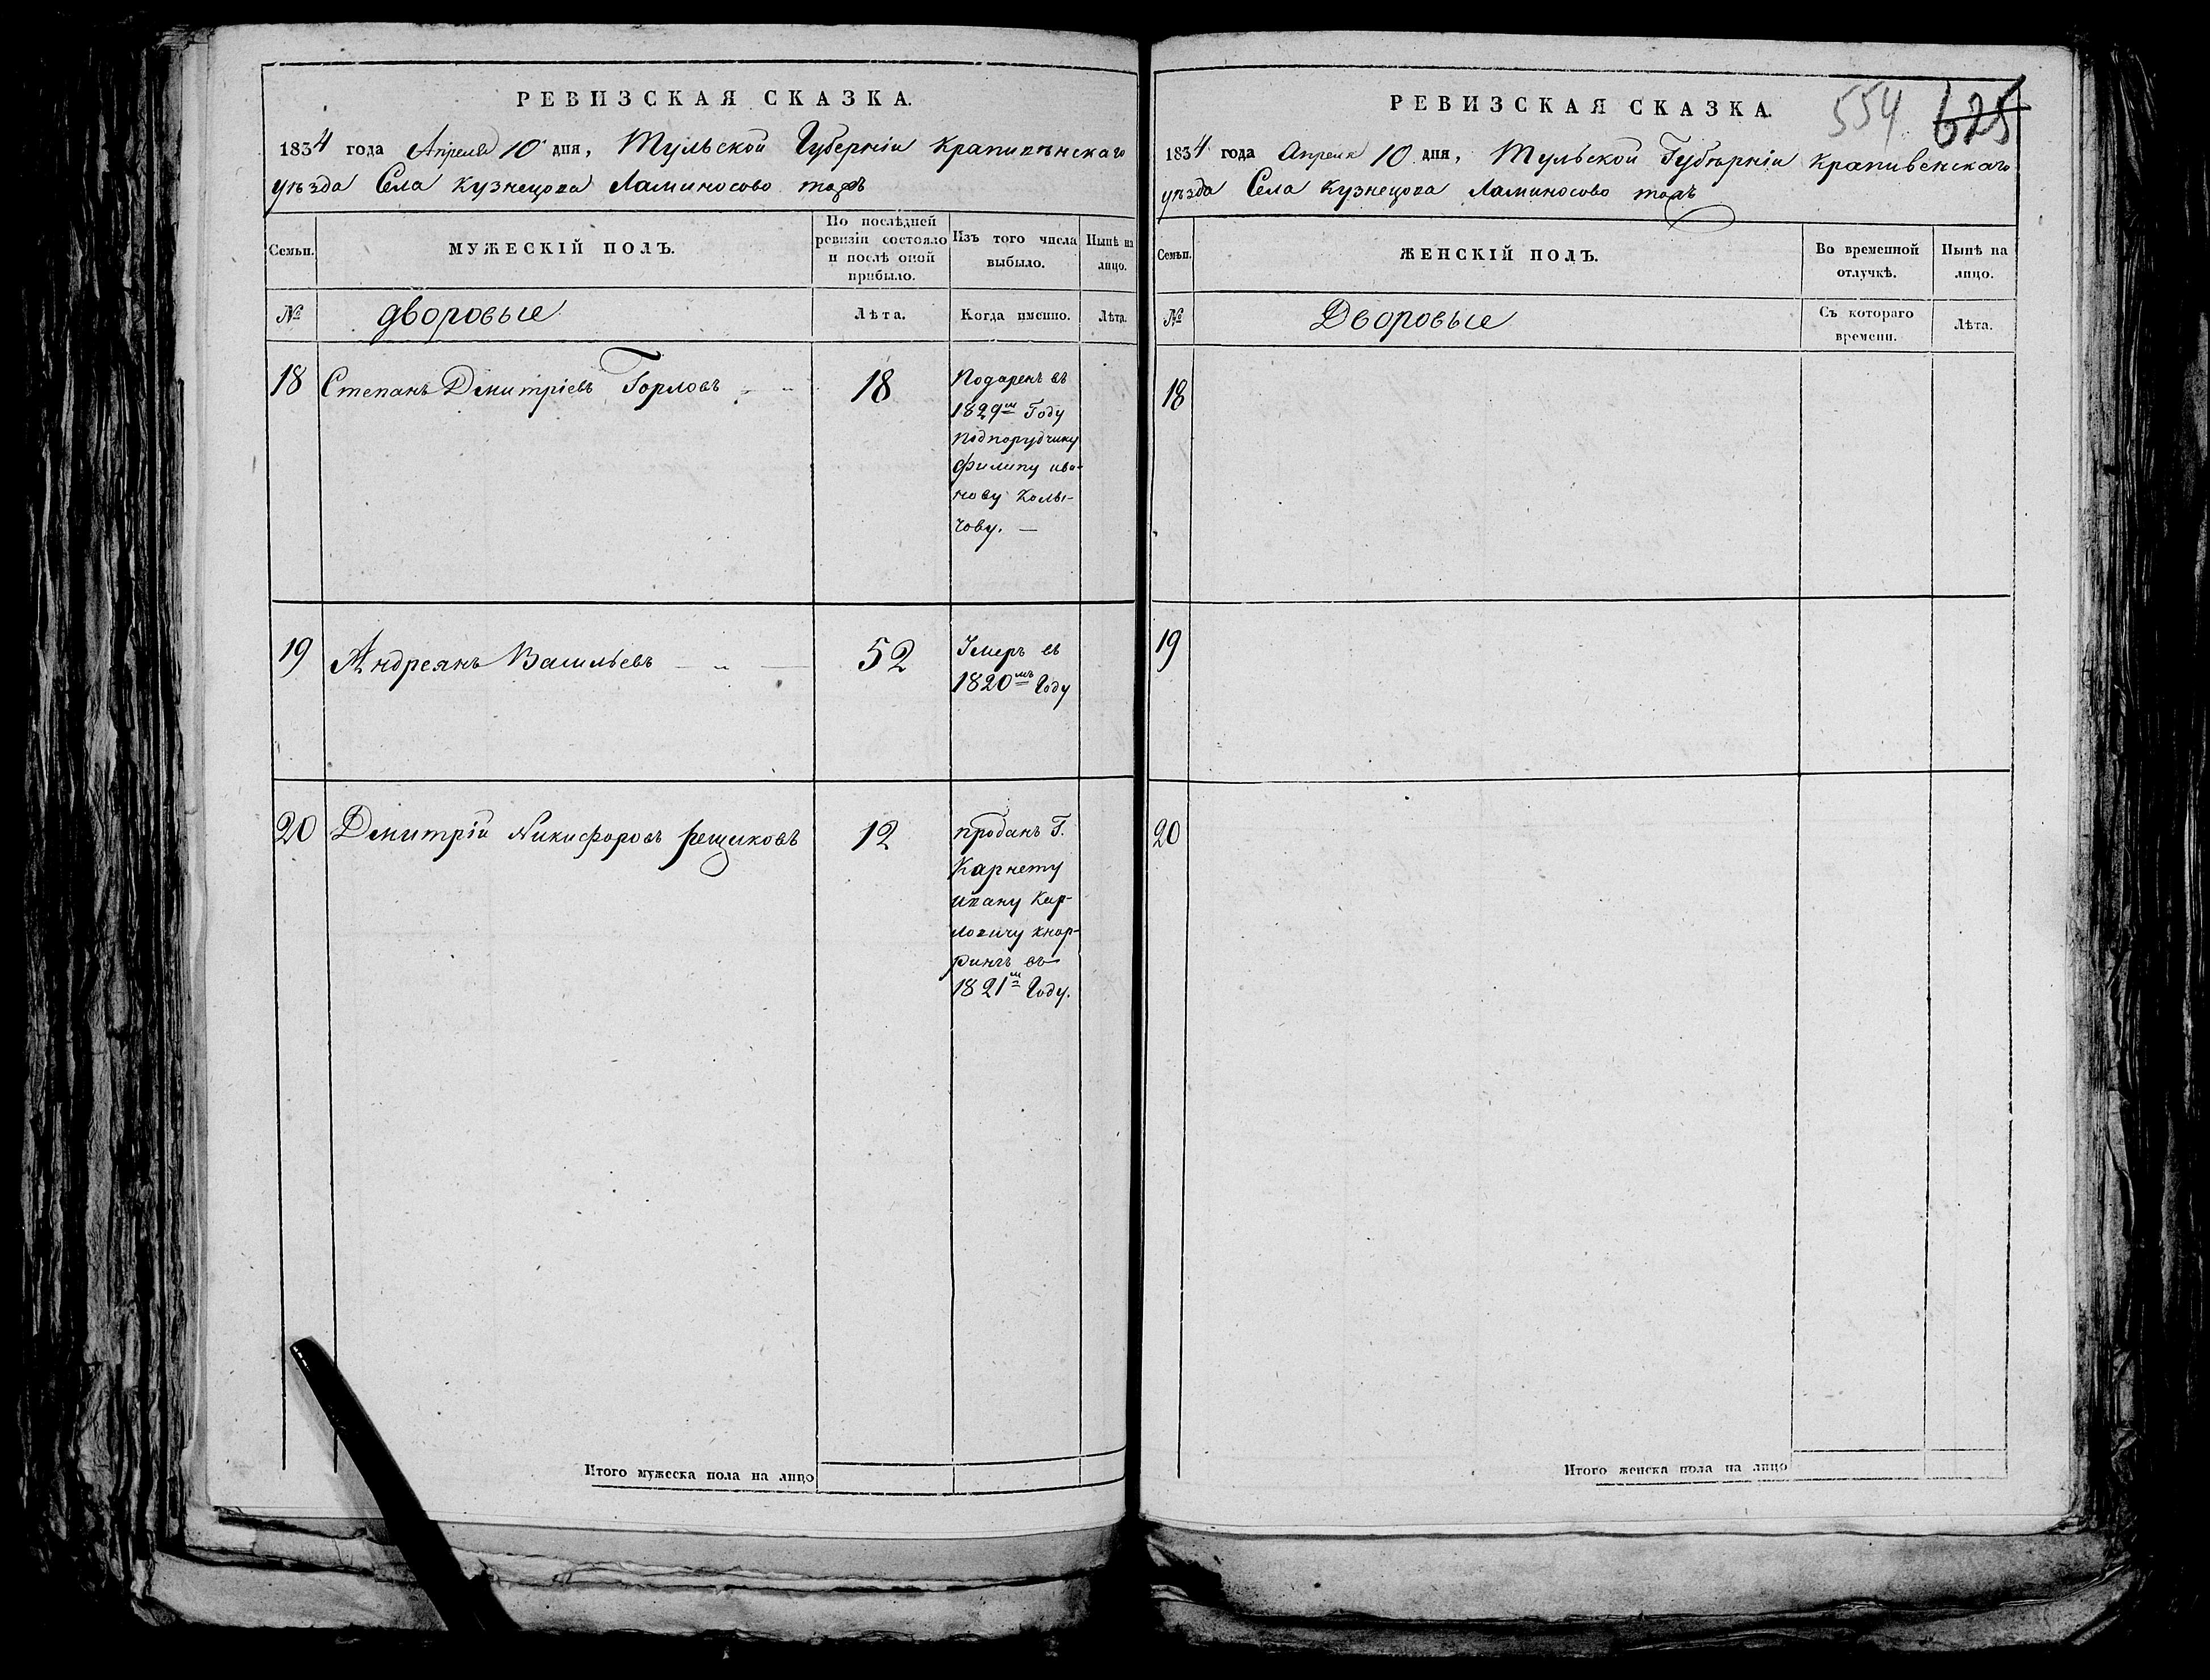 РЕВИЗСКАЯ СКАЗКА.
1834 года Апреля 10 дня, Тульской Губерніи Крапивенскаго
уѣзда Села Кузнецова Ламиносово тожъ
Семьи.
МУЖЕСКІЙ ПОЛЪ.
По послѣдней ревизіи состояло и послѣ оной прибыло.
Изъ того числа выбыло.
Нынѣ на лицо.
№
дворовые
Лѣта.
Когда именно.
Лѣта.
18 Степанъ Дмитріевъ Горловъ 18
Подаренъ въ
1829м Году
подпорудчику
Филипу ива-
нову Колы-
чову. —
19 Андреянъ Васильевъ 52
Умеръ въ
1820мъ Году
20 Дмитрій Никифоровъ рещиковъ 12
проданъ Г.
Карнету
ивану Кар-
ловичу Кнор-
рингъ въ
1821м Году.
Итого мужеска пола на лицо
РЕВИЗСКАЯ СКАЗКА.
554 625
1834 года Апреля 10 дня, Тульской Губѣрніи Крапивенскаго
уѣзда Села Кузнецова Ламиносово тожъ
Семьи.
ЖЕНСКІЙ ПОЛЪ.
Во временной отлучкѣ.
Нынѣ на лицо.
№
Дворовые
Съ котораго времени.
Лѣта.
18
19
20
Итого женска пола на лицо